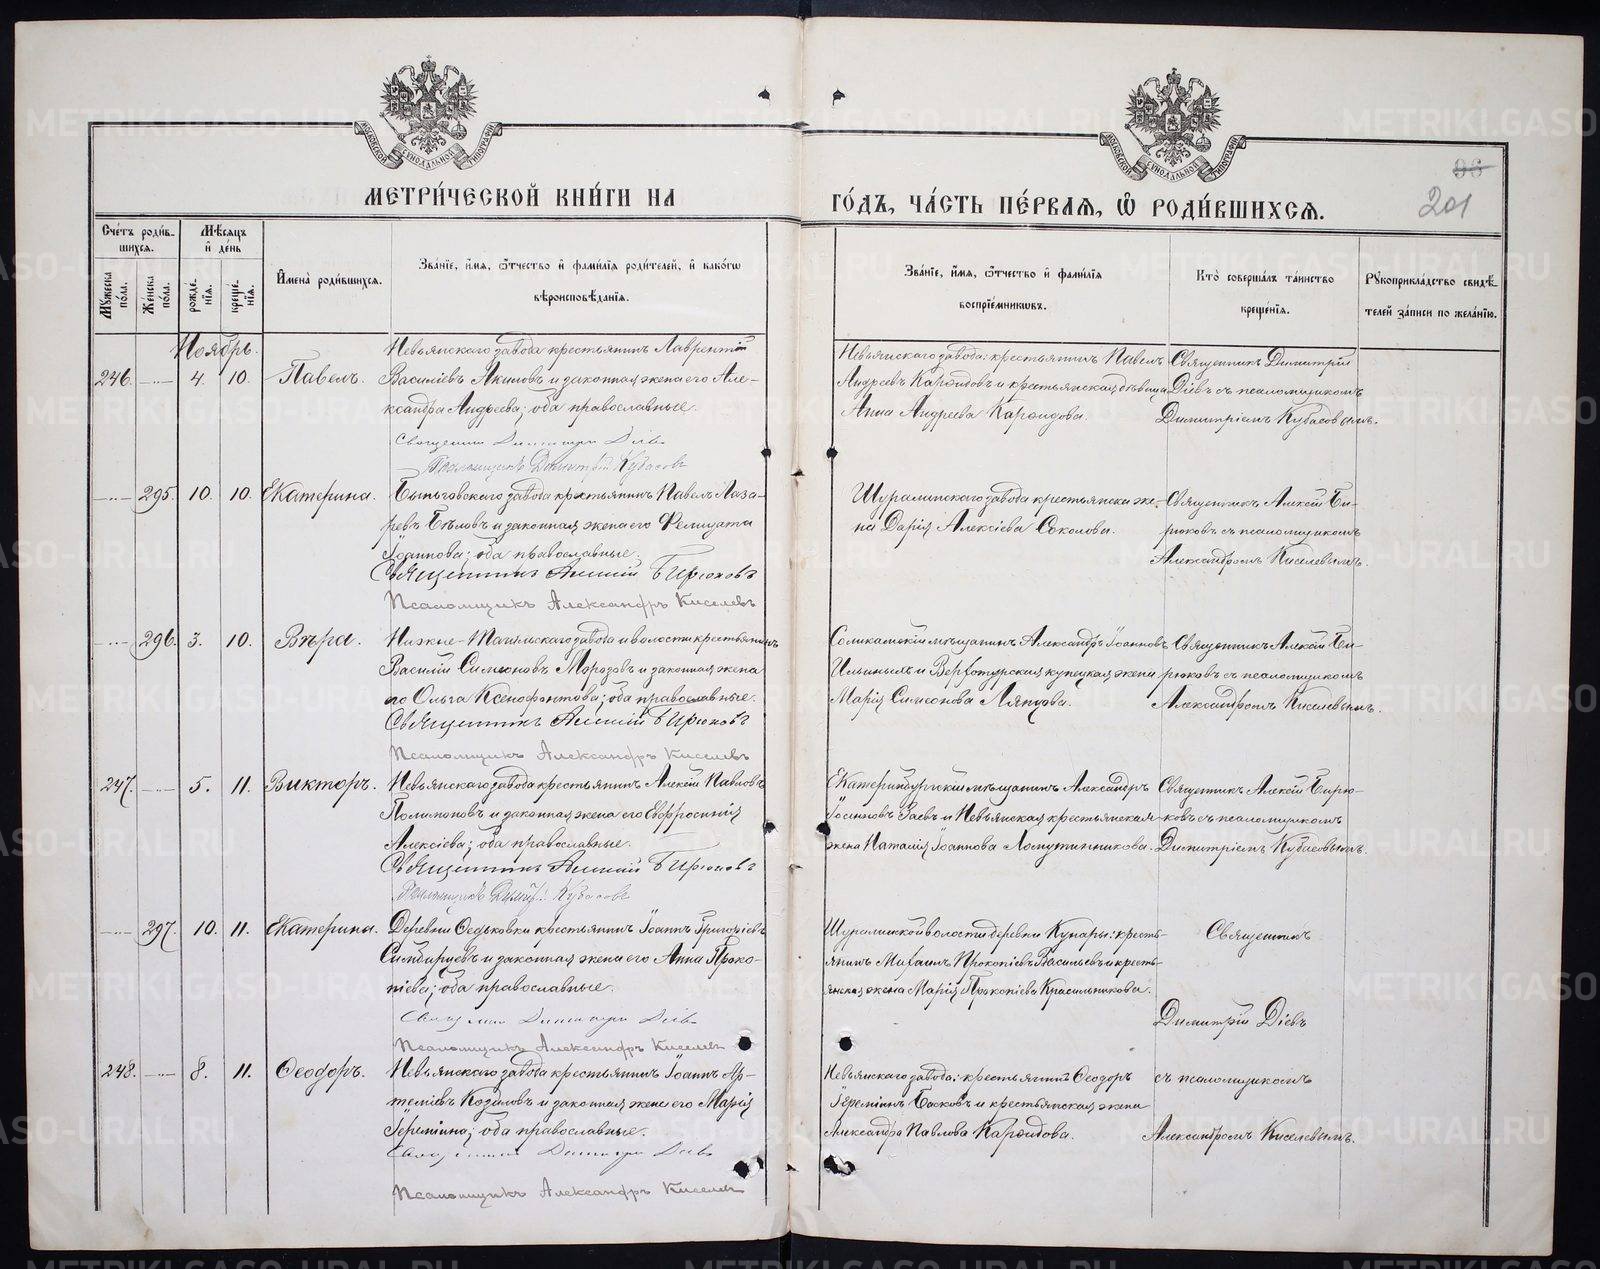 МОСКОВСКОЙ СУНОДАЛЬНОЙ ТИПОГРАФІИ
МОСКОВСКОЙ СУНОДАЛЬНОЙ ТИПОГРАФІИ
96
201
МЕТРИ́ЧЕСКОЙ КНИ́ГИ НА
ГО́ДЪ, ЧА́СТЬ ПЕ́РВАЯ, Ѽ РОДИ́ВШИХСЯ.
Сче́тъ роди́в-
шихся.
Мꙋжеска по́ла.
Же́нска по́ла.
Мѣ́сяцъ
и҆ де́нь
рожде́-
нїя.
креще́-
нїя.
И҆мена̀ роди́вшихся.
Зва́нїе, и҆́мя, ѻ҆́тчество и҆ фамі́лїя роди́телей, и҆ како́гѡ
вѣроисповѣ́данїя.
Зва́нїе, и҆́мя, ѻ҆́тчество и҆ фамі́лїя
воспрїе́мникѡвъ.
Кто̀ соверша́лъ та́инство
креще́нїя.
Рꙋкоприкла́дство свидѣ́-
телей за́писи по жела́нїю.
Ноябрь.
246. 4. 10. Павелъ.
Невьянскаго завода крестьянинъ Лаврентій
Василіевъ Акиловъ и законная жена его Але-
ксандра Андреева; оба православные.
Священникъ Димитрій Діевъ
Псаломщикъ Димитрій Кубасовъ
Невьянскаго завода: крестьянинъ Павелъ
Андреевъ Карфидовъ и крестьянская дѣвица
Анна Андреева Карфидова.
Священникъ Димитрій
Діевъ съ псаломщикомъ
Димитріемъ Кубасовымъ.
295. 10. 10. Екатерина.
Быньговскаго завода крестьянинъ Павелъ Лаза-
ревъ Бѣловъ и законная жена его Фелицата
Іоаннова; оба православные.
Священникъ Алексій Бирюковъ
Псаломщикъ Александръ Киселевъ
Шуралинскаго завода крестьянска же-
на Дарія Алексіева Соколова.
Священникъ Алексій Би-
рюковъ съ псаломщикомъ
Александромъ Киселевымъ.
296. 3. 10. Вѣра.
Нижне-Тагильскаго завода и волости крестьянинъ
Василій Симеоновъ Морозовъ и законная жена
его Ольга Ксенофонтова; оба православные.
Священникъ Алексій Бирюковъ
Псаломщикъ Александръ Киселевъ
Соликамскій мѣщанинъ Александръ Іоанновъ
Ильиныхъ и Верхотурская купецкая жена
Марія Симеонова Ляпцева.
Священникъ Алексій Би-
рюковъ съ псаломщикомъ
Александромъ Киселевымъ.
247. 5. 11. Викторъ.
Невьянскаго завода крестьянинъ Алексій Павловъ
Полимоновъ и законная жена его Евфросинія
Алексіева; оба православные.
Священникъ Алексій Бирюковъ
Псаломщикъ Димитрій Кубасовъ
Екатеринбургскій мѣщанинъ Александръ
Іосифовъ Заевъ и Невьянская крестьянская
жена Наталія Іоаннова Ломутинникова.
Священникъ Алексій Бирю-
ковъ съ псаломщикомъ
Димитріемъ Кубасовымъ.
297. 10. 11. Екатерина.
Деревни Федьковки крестьянинъ Іоаннъ Григоріевъ
Симбирцевъ и законная жена его Анна Проко-
піева; оба православные.
Священникъ Димитрій Діевъ
Псаломщикъ Александръ Киселевъ
Шуралинской волости деревни Кунары: кресть-
янинъ Михаилъ Прокопіевъ Васильевъ и кресть-
янская жена Марія Прокопіева Красильникова.
Священникъ
Димитрій Діевъ
248. 8. 11. Феодоръ.
Невьянскаго завода крестьянинъ Іоаннъ Ар-
теміевъ Козиловъ и законная жена его Марія
Іереміина; оба православные.
Священникъ Димитрій Діевъ
Псаломщикъ Александръ Киселевъ
Невьянскаго завода: крестьянинъ Феодоръ
Іереміинъ Басковъ и крестьянская жена
Александра Павлова Карфидова.
съ псаломщикомъ
Александромъ Киселевымъ.
METRIKI.GASO-URAL.RU